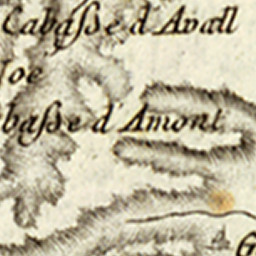 Cabaſſe d'Avall
Joe
baſſe d'Amont
G